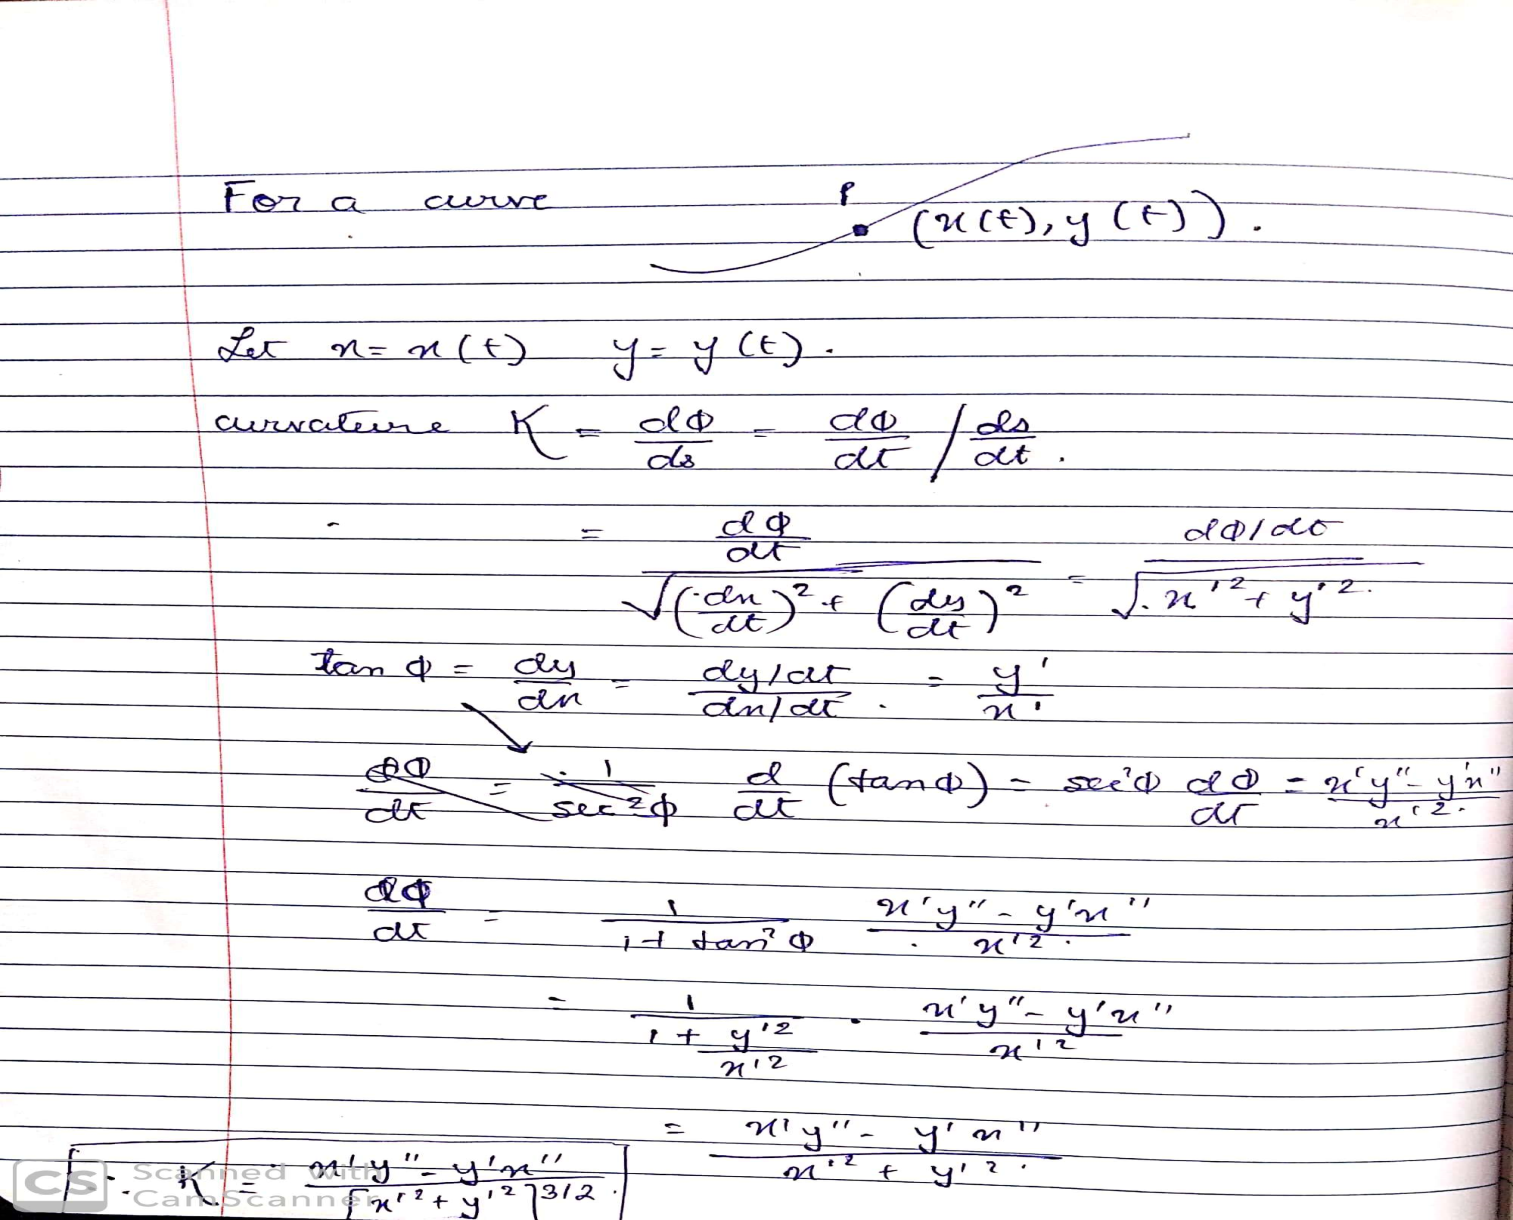 For a curve P (x(t), y(t)).
Let x = x(t) y = y(t).
curvature K = dφ/ds = dφ/dt / ds/dt.
= (dφ/dt) / √((dx/dt)² + (dy/dt)²) = (dφ/dt) / √(x'² + y'²).
tan φ = dy/dx = (dy/dt)/(dx/dt). = y'/x'
dφ/dt = 1/sec²φ d/dt (tan φ) = sec²φ dφ/dt = (x'y" - y'x")/x'².
dφ/dt = 1/(1 + tan²φ) (x'y" - y'x")/x'².
= 1/(1 + y'²/x'²) . (x'y" - y'x")/x'²
= (x'y" - y'x")/(x'² + y'²).
∴ K = (x'y" - y'x")/[x'² + y'²]^3/2.
CS Scanned with
CamScanner